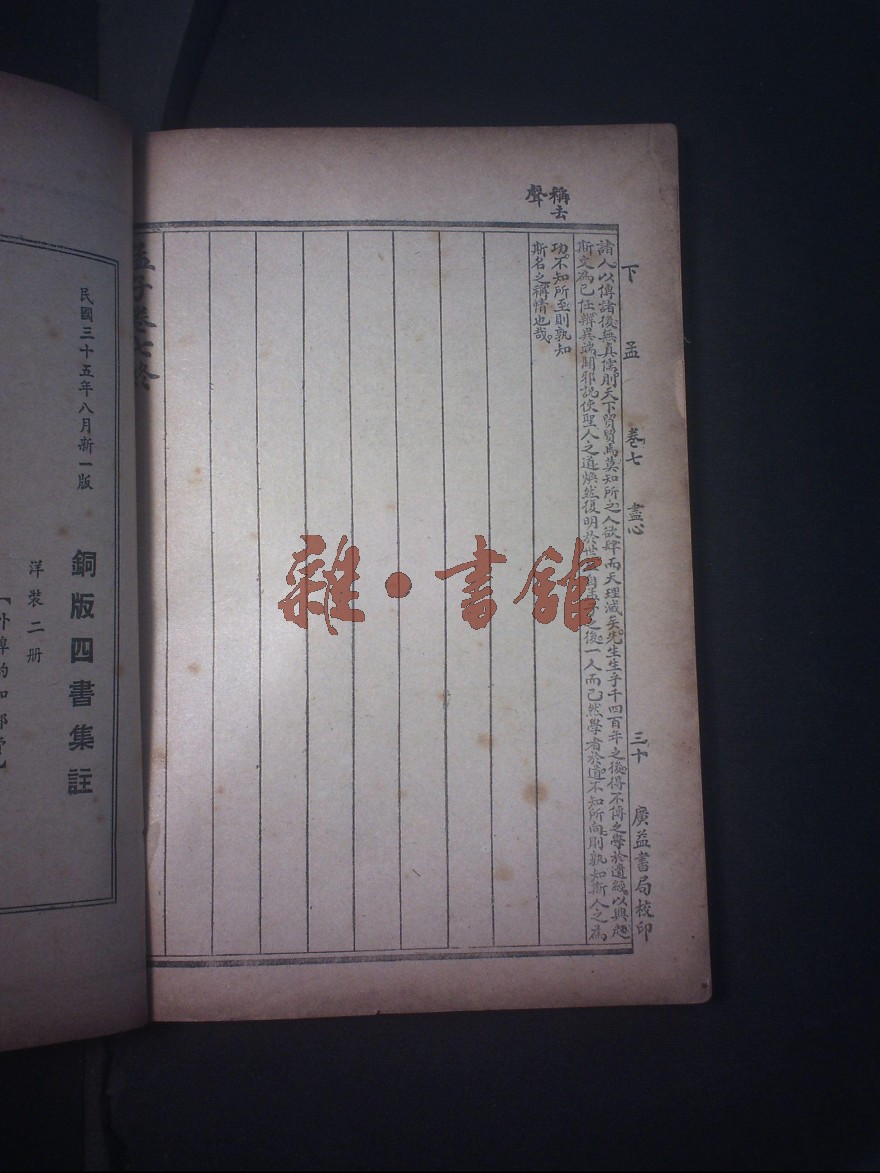 稱去
聲
下孟 卷七 盡心 三十 廣益書局校印
諸人以傳諸後無真儒則天下貿貿焉莫知所之人欲肆而天理滅矣先生生乎千四百年之後得不傳之學於遺經以興起
斯文為己任辨異端闢邪說使聖人之道煥然復明於世自孟子之後一人而已然學者於道不知所向則孰知斯人之為
功不知所至則孰知
斯名之稱情也哉
孟子卷七終
雜·書館
民國三十五年八月新一版
銅版四書集註
洋裝二册